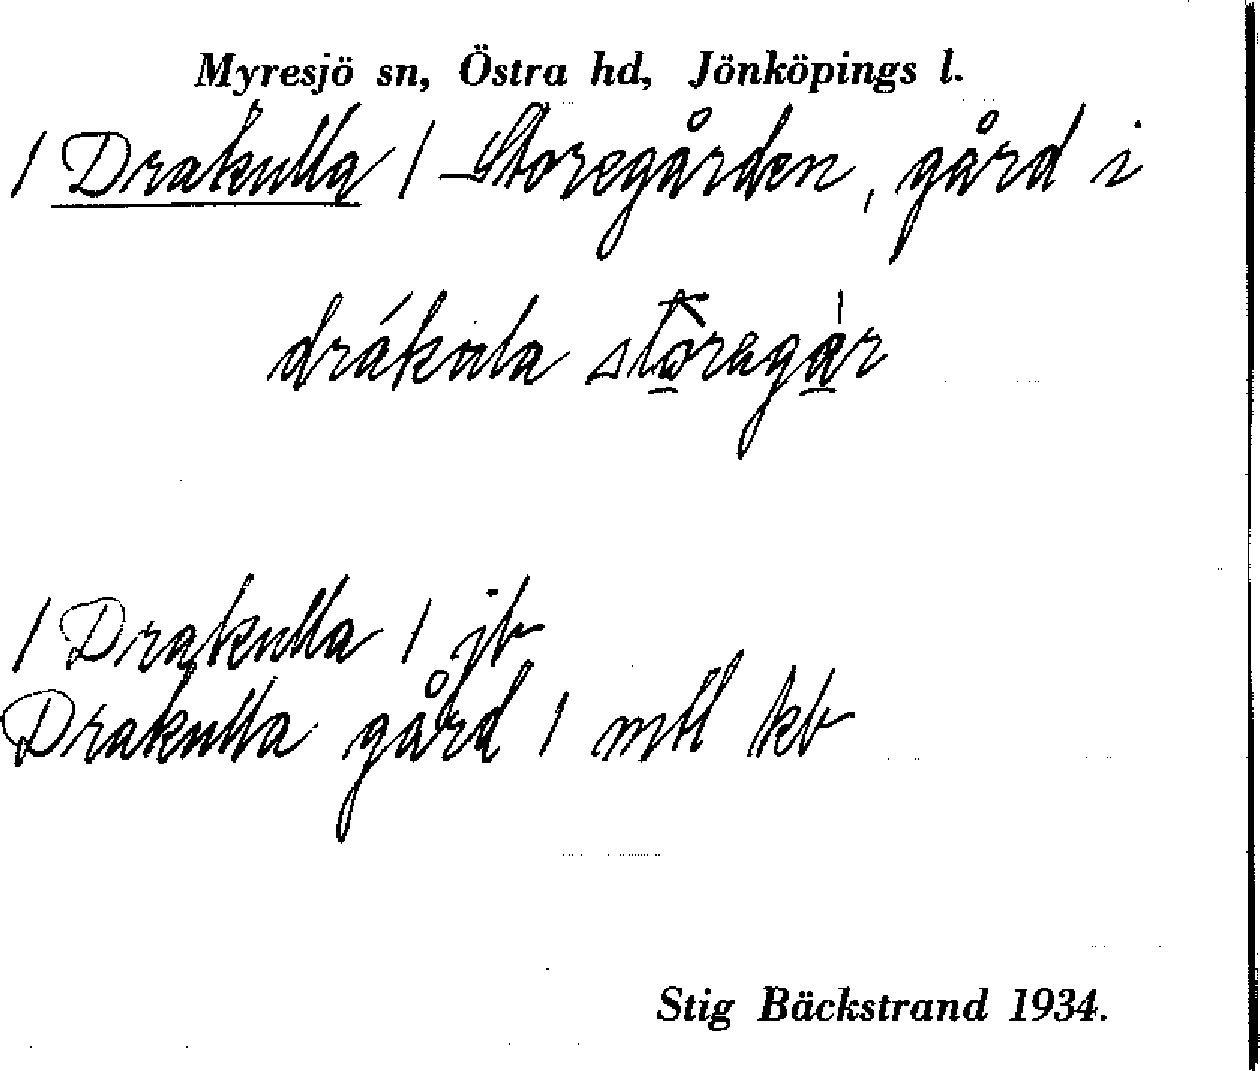 Myresjö sn, Östra hd, Jönköpings l.
/ Drakulla / Storegården, gård i
drákula storegár
/ Drakulla / jb
Drakulla gård / mtl kb
Stig Bäckstrand 1934.